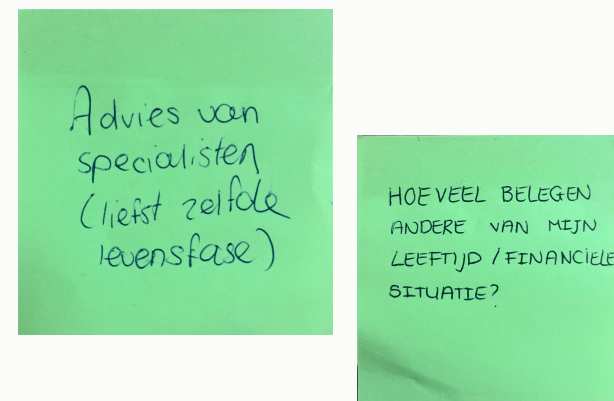 Advies van
specialisten
(liefst zelfde
levensfase)
HOEVEEL BELEGEN
ANDERE VAN MIJN
LEEFTIJD / FINANCIELE
SITUATIE?